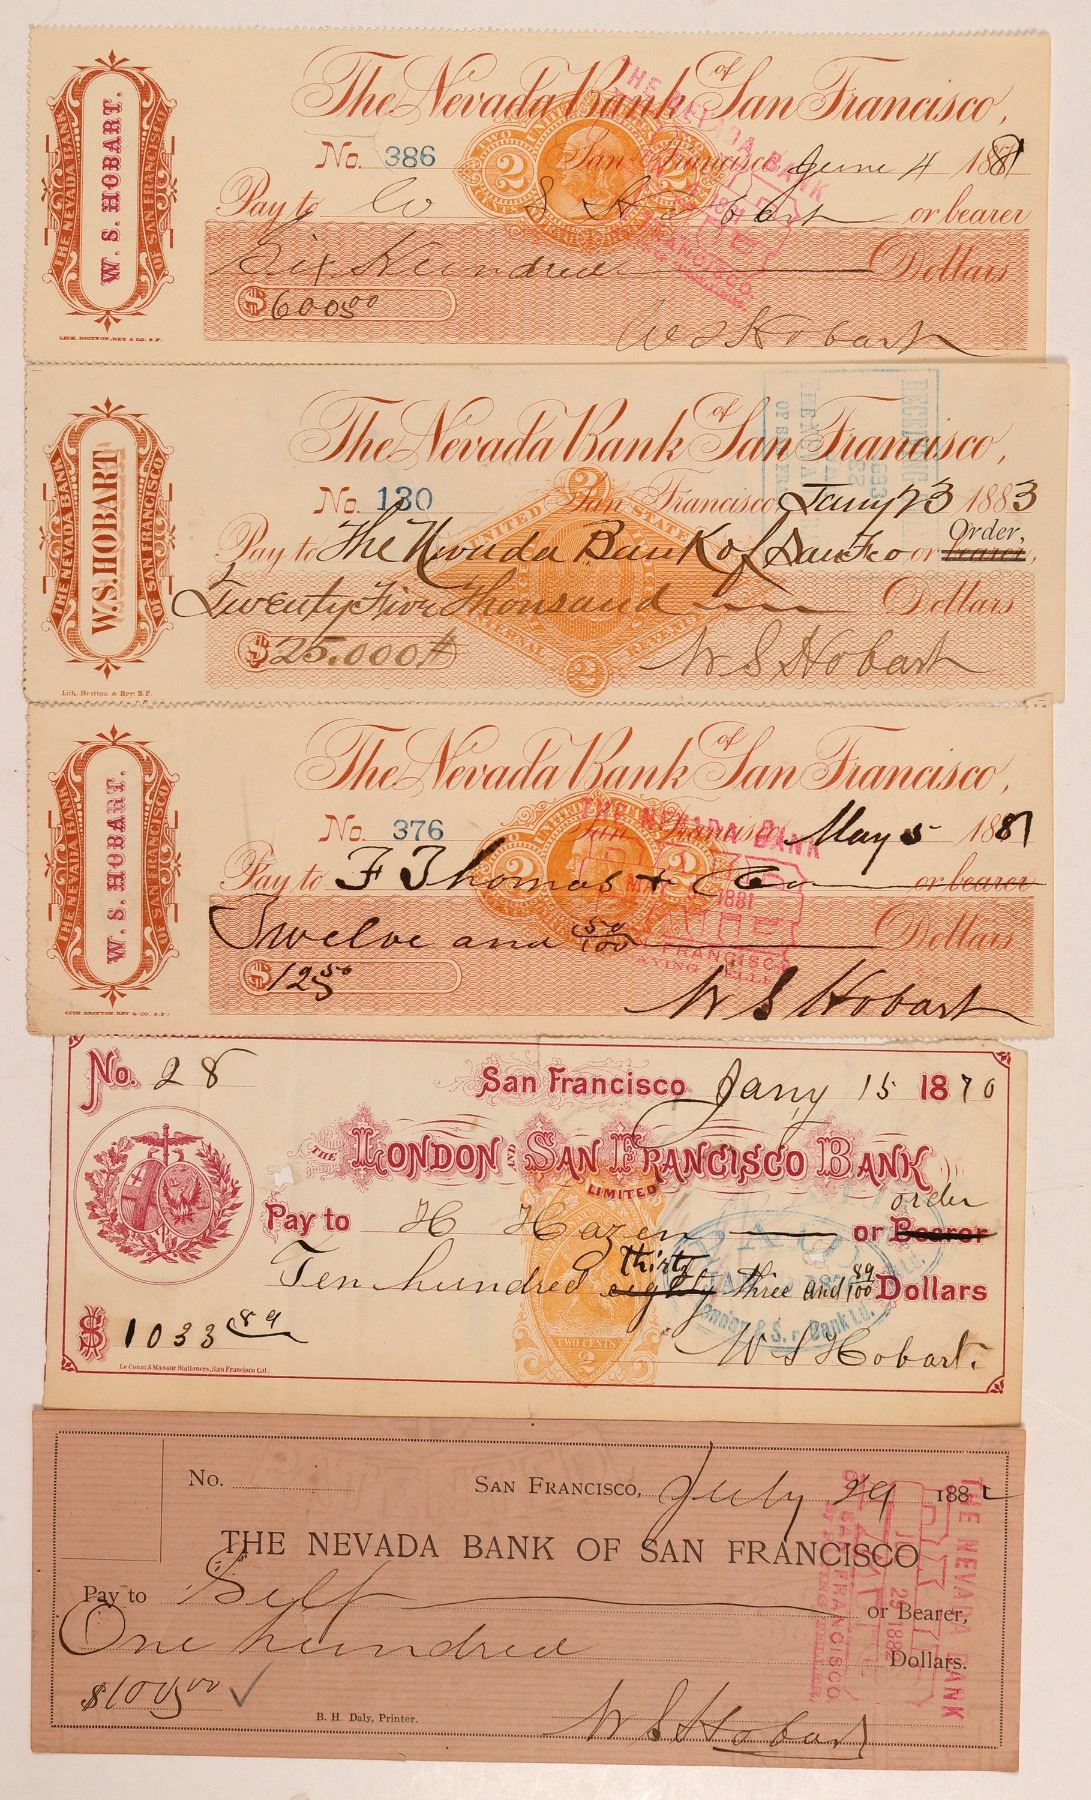 The Nevada Bank of San Francisco,
THE NEVADA BANK
W. S. HOBART.
OF SAN FRANCISCO
No. 386
San Francisco June 4 1881
TWO 2 UNITED
Pay to W S Hobart or bearer
Six Hundred Dollars
$600 00
W S Hobart
LITH. BRITTON, REY & CO. S.F.
THE NEVADA BANK
SAN FRANCISCO
The Nevada Bank of San Francisco,
THE NEVADA BANK
W.S. HOBART
OF SAN FRANCISCO
No. 130
San Francisco Jany 23 1883
UNITED STATES
INTERNAL REVENUE
2
2
Pay to The Nevada Bank of San Fco or bearer,
Order,
Twenty Five Thousand Dollars
$25.000.#
W S Hobart
Lith. Britton & Rey. S.F.
RECEIVING
The Nevada Bank of San Francisco,
THE NEVADA BANK
W. S. HOBART.
OF SAN FRANCISCO
No. 376
San Francisco May 5 1881
Pay to F Thomas + Co or bearer
2 2
Twelve and 50/100 Dollars
$12 50
W S Hobart
LITH. BRITTON REY & CO. S.F.
THE NEVADA BANK
1881
PAYING TELLER
No. 28
San Francisco Jany 15 1870
THE LONDON AND SAN FRANCISCO BANK
LIMITED
order
Pay to H Hazen or Bearer
thirty
Ten hundred eighty three and 89/100 Dollars
$1033 89
TWO CENTS
2
W S Hobart.
Le Count & Mansur Stationers, San Francisco Cal.
PAID
London & S. F. Bank Ld.
No.
SAN FRANCISCO, July 29 1882
THE NEVADA BANK OF SAN FRANCISCO
Pay to Self or Bearer,
One hundred Dollars.
$100 00
B. H. Daly, Printer.
W S Hobart
THE NEVADA BANK
29 1882
SAN FRANCISCO
PAYING TELLER